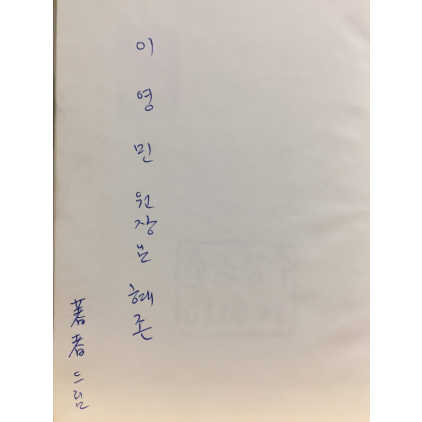 이영민 원장님 혜존
著者 드림